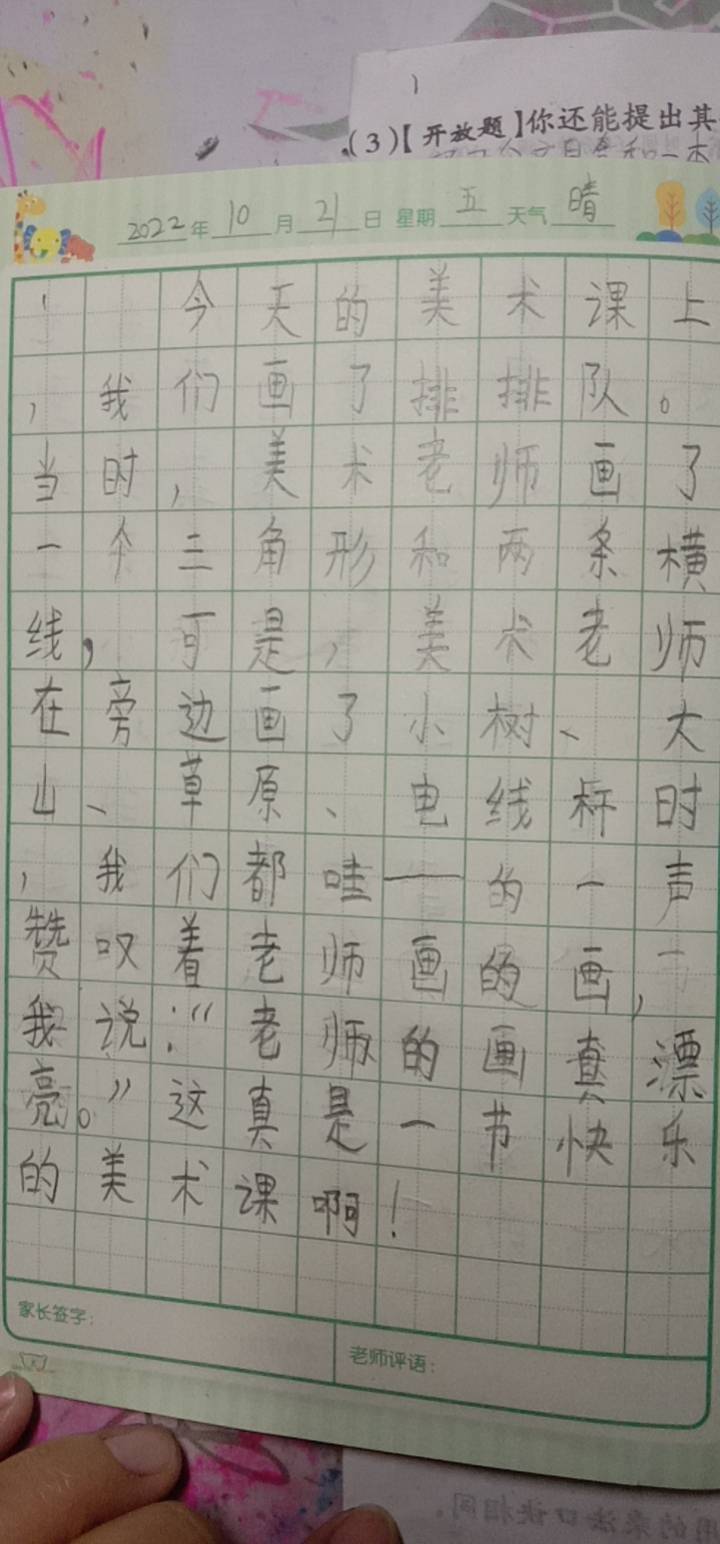 (3)【开放题】你还能提出其
2022年10月21日 星期五 天气晴
今天的美术课上
，我们画了排排队。
当时，美术老师画了
一个三角形和两条横
线，可是，美术老师
在旁边画了小树、大
山、草原、电线杆时
，我们都哇——的一声
赞叹着老师画的画，
我说：“老师的画真漂
亮。”这真是一节快乐
的美术课啊！
家长签字：
老师评语：